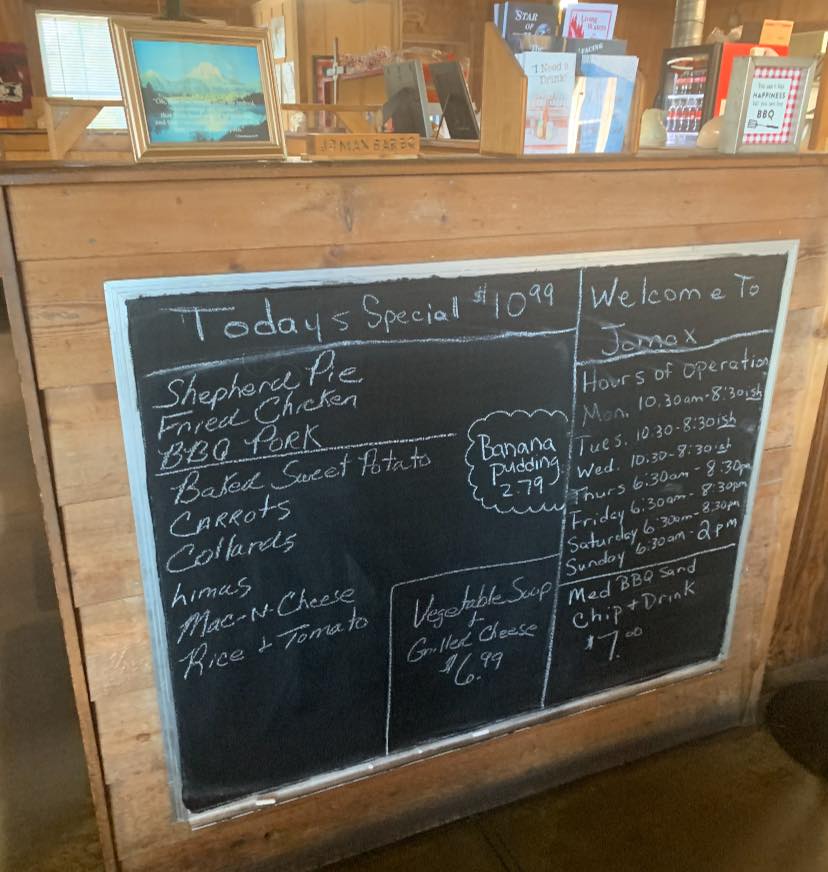 STAR OF
LIVING WATERS
I Need a
Drink
HAPPINESS
BBQ
Todays Special $10.99
Shepherd Pie
Fried Chicken
BBQ PORK
Baked Sweet Potato
CARROTS
Collards
Limas
Mac-N-Cheese
Rice + Tomato
Banana
pudding
2.79
Vegetable Soup
+
Grilled Cheese
$6.99
Welcome To
Jomax
Hours of Operation
Mon. 10:30am-8:30ish
Tues. 10:30-8:30ish
Wed. 10:30-8:30ish
Thurs 6:30am - 8:30pm
Friday 6:30am - 8:30pm
Saturday 6:30am - 8:30pm
Sunday 6:30am - 2pm
Med BBQ Sand
Chip + Drink
$7.00